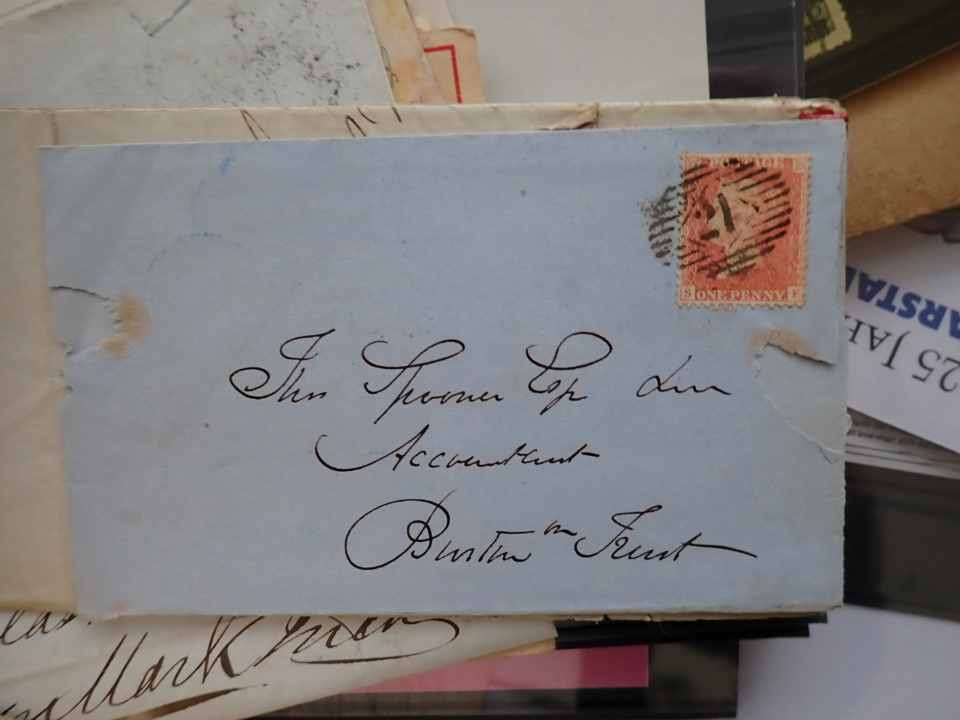 POSTAGE
21
S ONE PENNY F
Thos Spooner Esq Jun
Accountant
Burton on Trent
Mark
25 JA
ARSTA